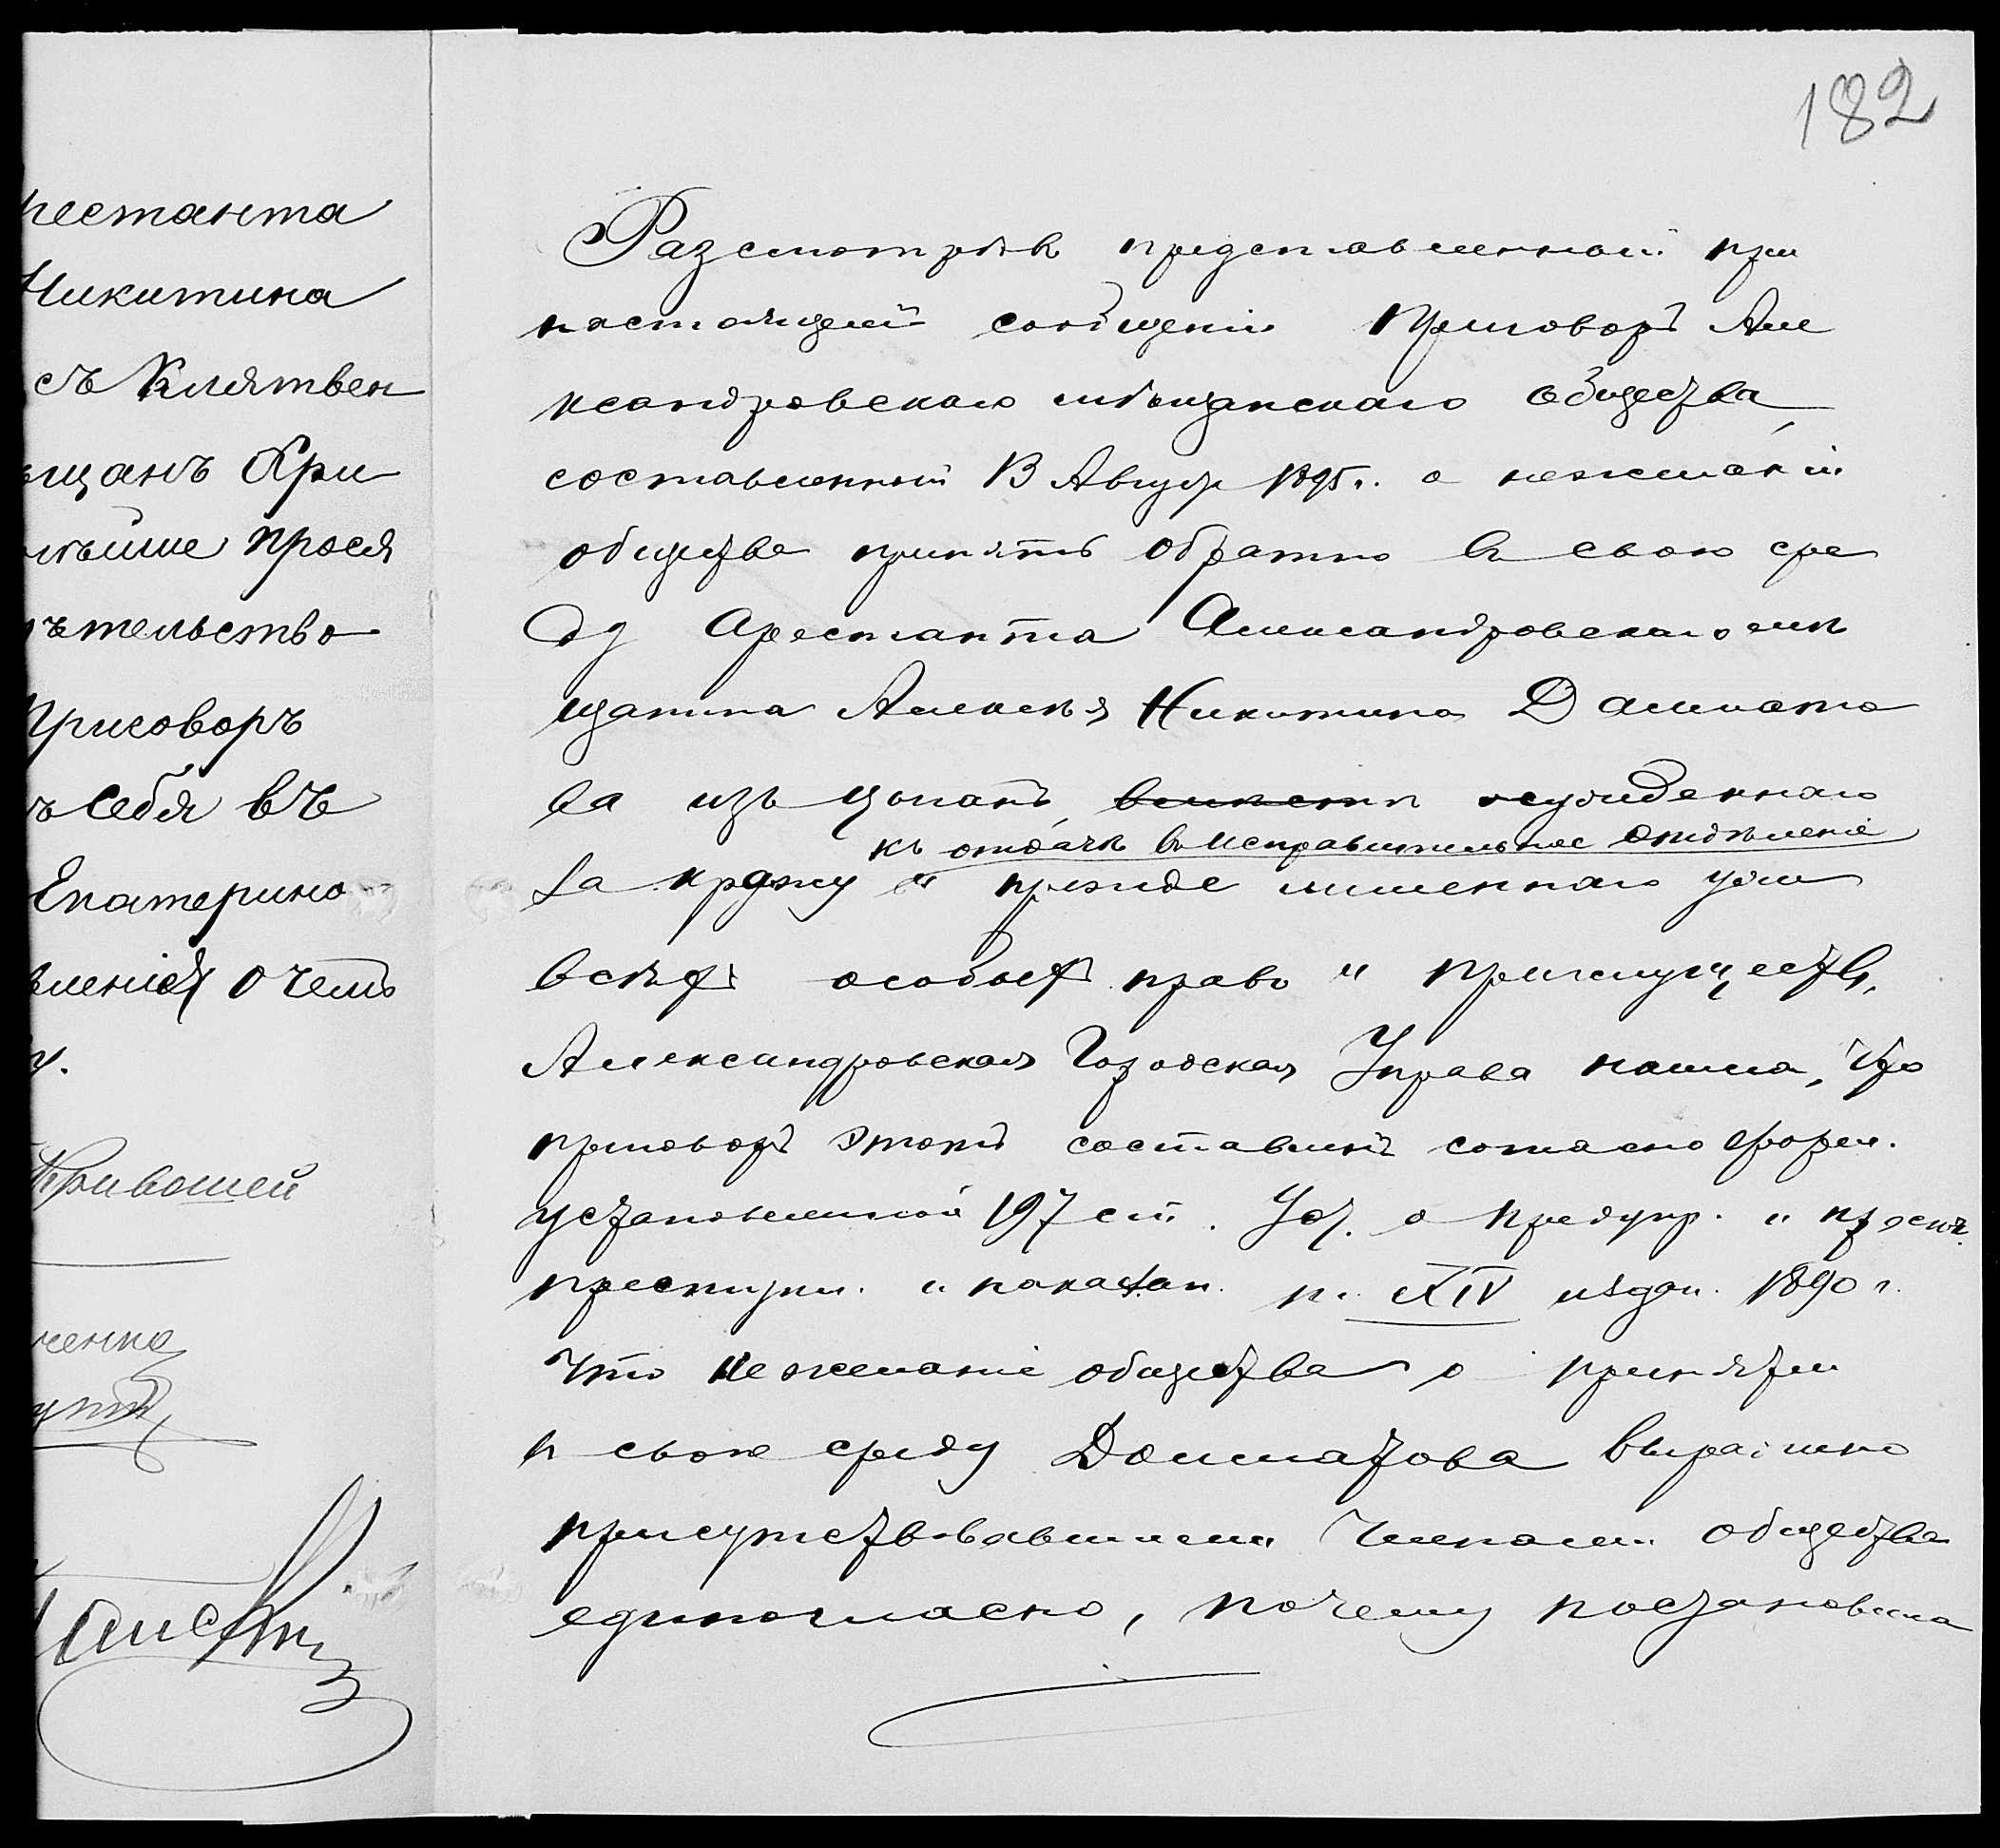 182
рестанта
Никитина
съ Клятвен
щанъ Хри
нѣйше прося
тельство
Приговоръ
ъ себя въ
Екатерино
вленіем о чемъ
Кривошей
ченко
Разсмотрѣвъ представленный при
настоящемъ сообщеніи приговоръ Але
ксандровскаго мѣщанскаго общества
составленный 13 Август 1895 г. о нежеланіи
общества принять обратно въ свою сре
ду арестанта Александровскаго мѣ
щанина Алексѣя Никитина Далмато
ва изъ цыганъ, осужденнаго
къ отдачѣ въ исправительное отдѣленіе
за кражу и прежде лишеннаго уже
всѣхъ особыхъ правъ и преимуществъ,
Александровская Городская Управа нашла, что
приговоръ этотъ составленъ согласно форм.
установленной 197 ст. Уст. о предупр. и пресѣч.
преступл. и наказан. т. XIV издан. 1890 г.
что нежеланіе общества о принятіи
въ свою среду Долматова выражено
присутствовавшими членами общества
единогласно, почему постановила